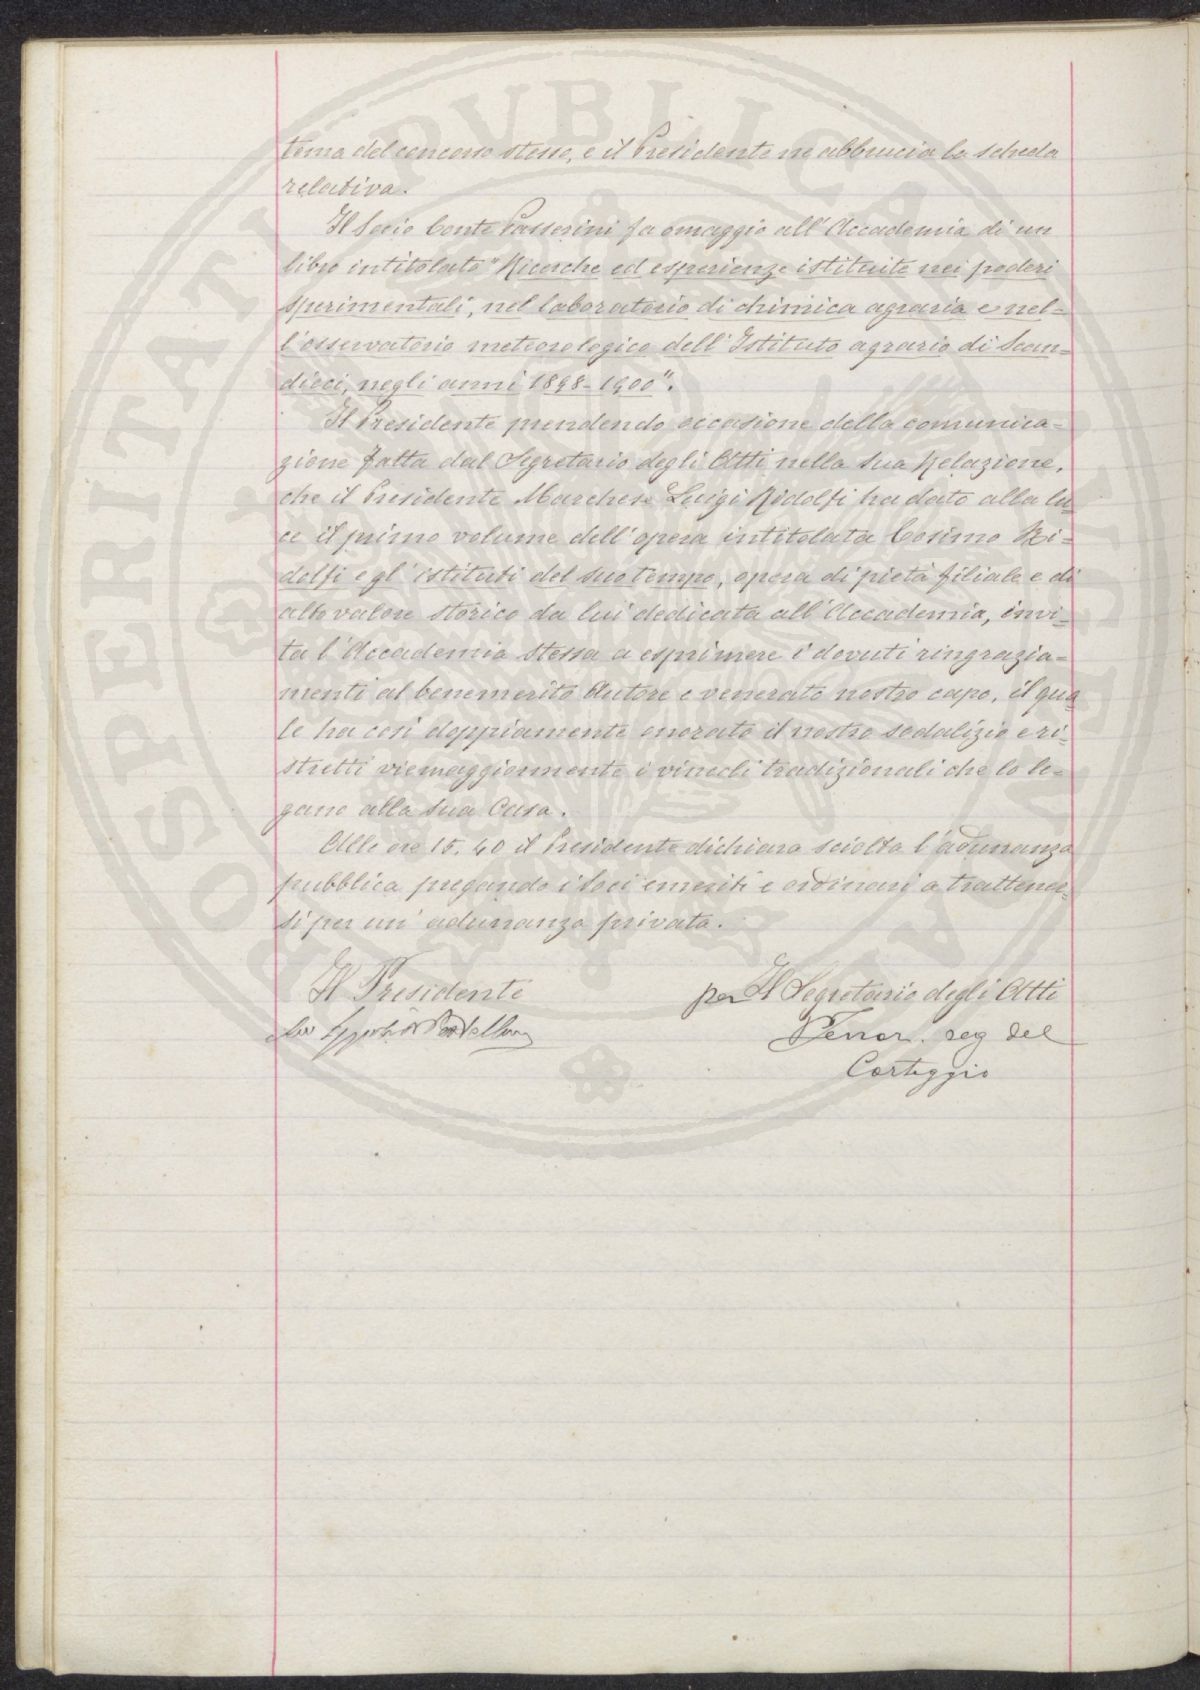 tema del concorso stesso, e il Presidente ne abbrucia la scheda
relativa.
Il Socio Conte Passerini fa omaggio all'Accademia di un
libro intitolato "Ricerche ed esperienze istituite nei poderi
sperimentali, nel laboratorio di chimica agraria e nel=
l'osservatorio meteorologico dell'Istituto agrario di Scan=
dicci, negli anni 1898-1900".
Il Presidente prendendo occasione della comunica=
zione fatta dal Segretario degli Atti nella sua Relazione,
che il Presidente Marchese Luigi Ridolfi ha dato alla lu=
ce il primo volume dell'opera intitolata Cosimo Ri=
dolfi e gl'istituti del suo tempo, opera di pietà filiale e di
alto valore storico da lui dedicata all'Accademia, invi=
ta l'Accademia stessa a esprimere i dovuti ringrazia=
menti al benemerito Autore e venerato nostro capo, il qua
le ha così doppiamente onorato il nostro sodalizio e ri=
stretti viemaggiormente i vincoli tradizionali che lo le=
gano alla sua Casa.
Alle ore 15.40 il Presidente dichiara sciolta l'adunanza
pubblica pregando i Soci emeriti e ordinari a trattener=
si per un'adunanza privata.
Il Presidente
per Il Segretario degli Atti
seg del
Carteggio
PROSPERITATI PVBLICAE AVGENDAE